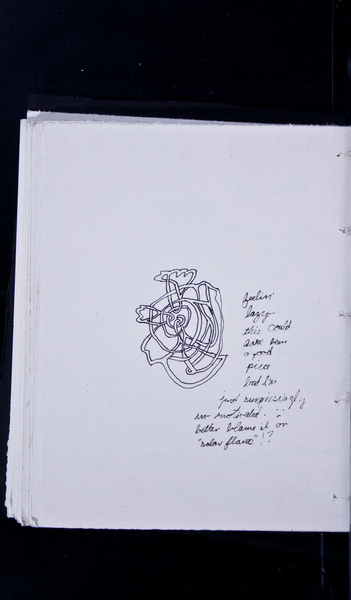 feelin'
lazy
this could
have been
a good
piece
but I'm
just surprisingly
un-motivated. ::
better blame it on
"solar flare"!?